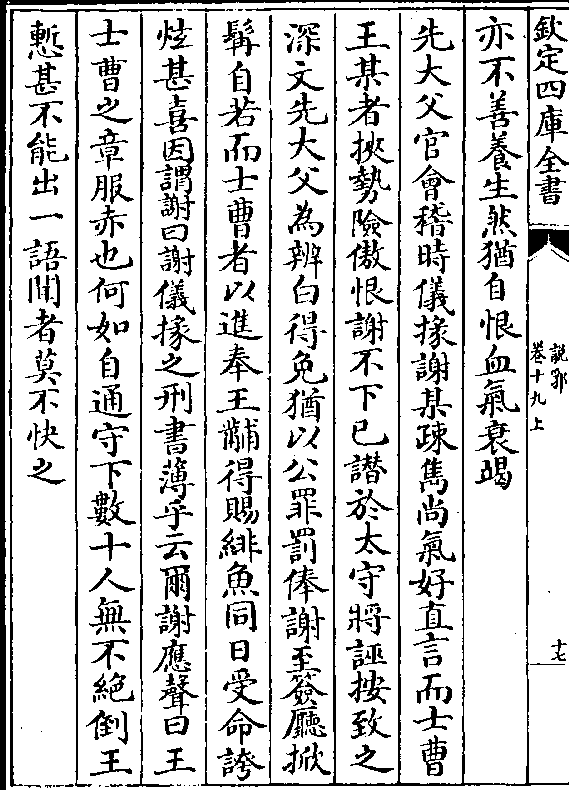 欽定四庫全書
說郛
卷十九上
十七
亦不善養生然猶自恨血氣衰竭
先大父官會稽時儀掾謝某疎雋尚氣好直言而士曹
王某者挾勢險傲恨謝不下已譖於太守將誣按致之
深文先大父為辨白得免猶以公罪罰俸謝至簽廳掀
髯自若而士曹者以進奉王黼得賜緋魚同日受命誇
炫甚喜因謂謝曰謝儀掾之刑書薄乎云爾謝應聲曰王
士曹之章服赤也何如自通守下數十人無不絶倒王
慙甚不能出一語聞者莫不快之